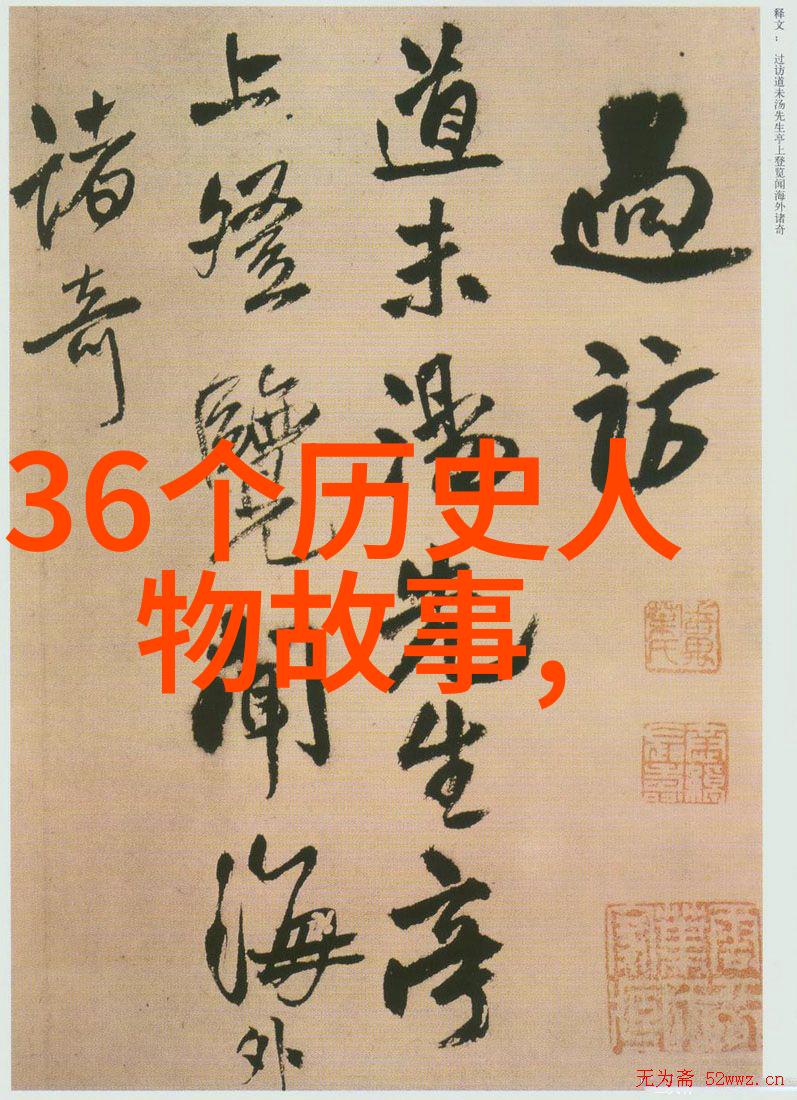 释文： 过访道未汤先生亭上登览闻海外诸奇
過訪
道未湯先生亭
上登覽聞海外
諸奇
36个历史人
物故事,
无为斋 52wwz.cn